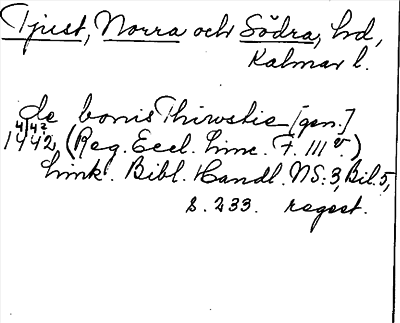 Tjust, Norra och Södra, hd,
Kalmar l.
de bonis Thiwstie [gen.]
4/4 2
1442, (Reg. Eccl. Linc. F. III v.)
Link. Bibl. Handl. NS: 3, Bil. 5,
s. 233. regest.